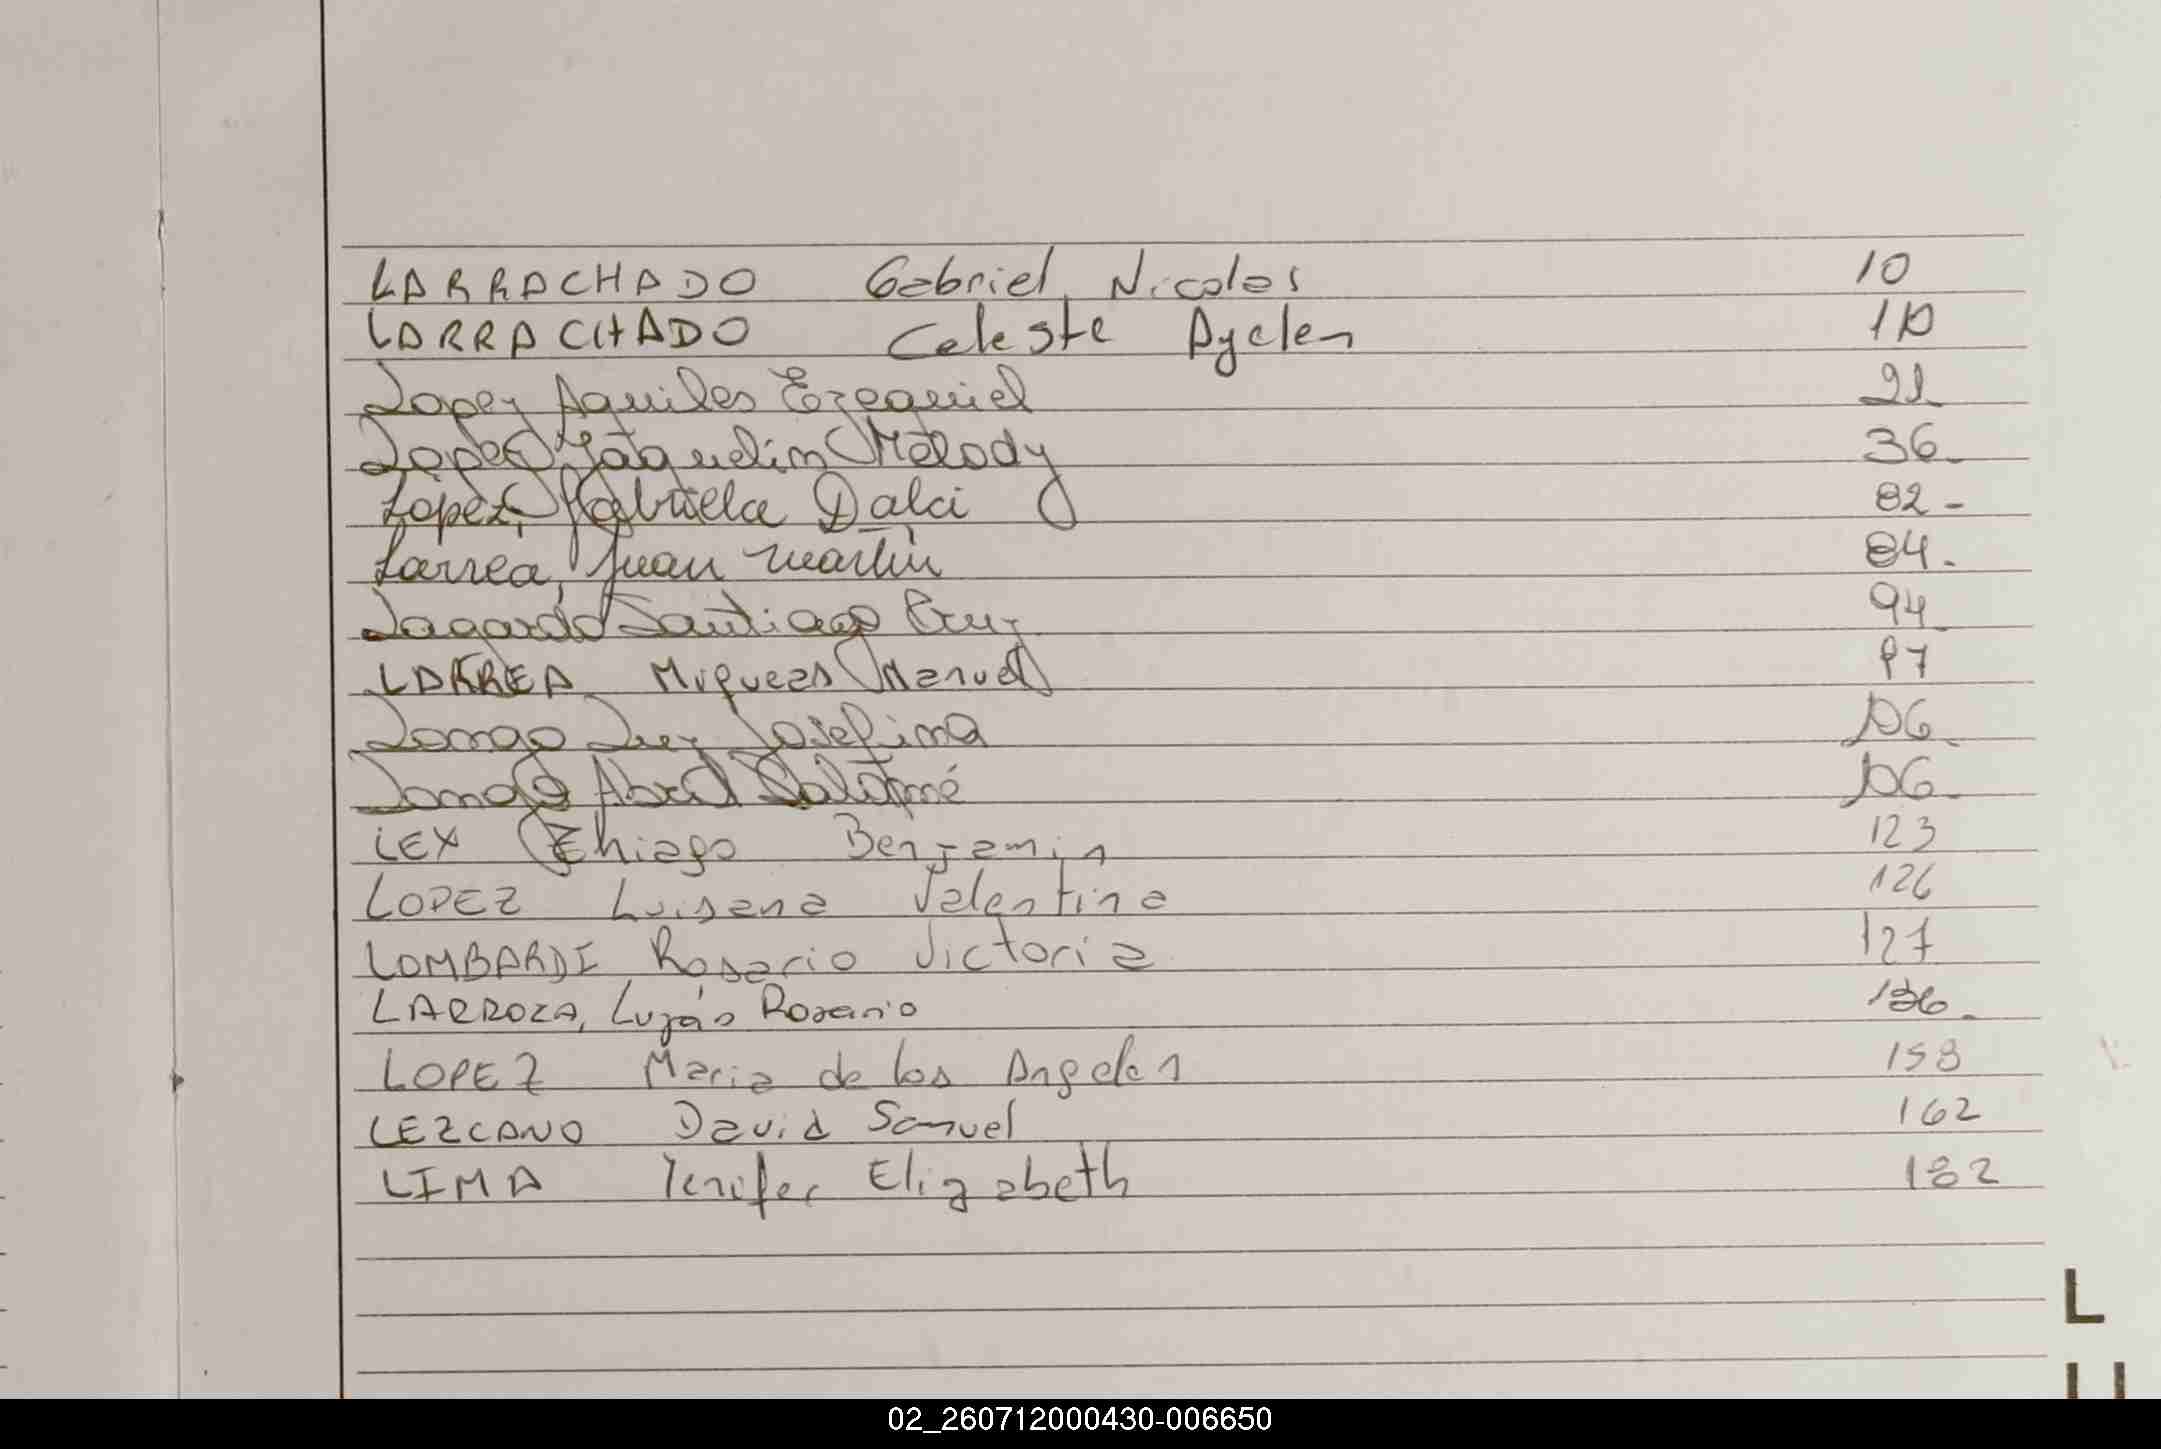 LARRACHADO Gabriel, Nicolas 10
LARRACHADO Celeste Ayelen 10
Lopez Aquiles Ezequiel 21
Lopez Jaquelin Melody 36
López, Gabriela Dalci 82
Larrea, Juan Martín 84
Lagardo Santiago Cruz 94
LARREA Miqueas Manuel 97
Longo Luz Josefina 106
Longo Abril Salomé 106
LEX Thiago Benjamin 123
LOPEZ Luisana Valentina 126
LOMBARDI Rosario Victoria 127
LARROZA, Luján Rosario 136
LOPEZ Maria de los Angeles 158
LEZCANO David Samuel 162
LIMA Yenifer Elizabeth 182
L
02_260712000430-006650